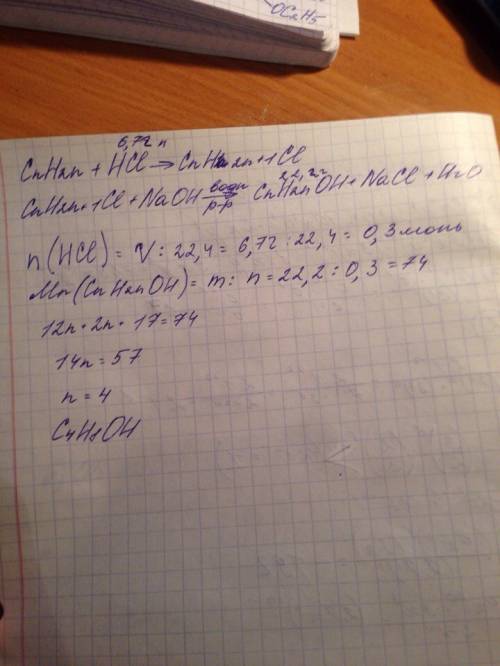 OC2H5
6,72 л
CnH2n + HCl → CnH2n+1Cl
22,2 г
CnH2n+1Cl + NaOH водн р-р → CnH2nOH + NaCl + H2O
n(HCl) = V : 22,4 = 6,72 : 22,4 = 0,3 моль
Mr(CnH2nOH) = m : n = 22,2 : 0,3 = 74
12n + 2n + 17 = 74
14n = 57
n = 4
C4H8OH